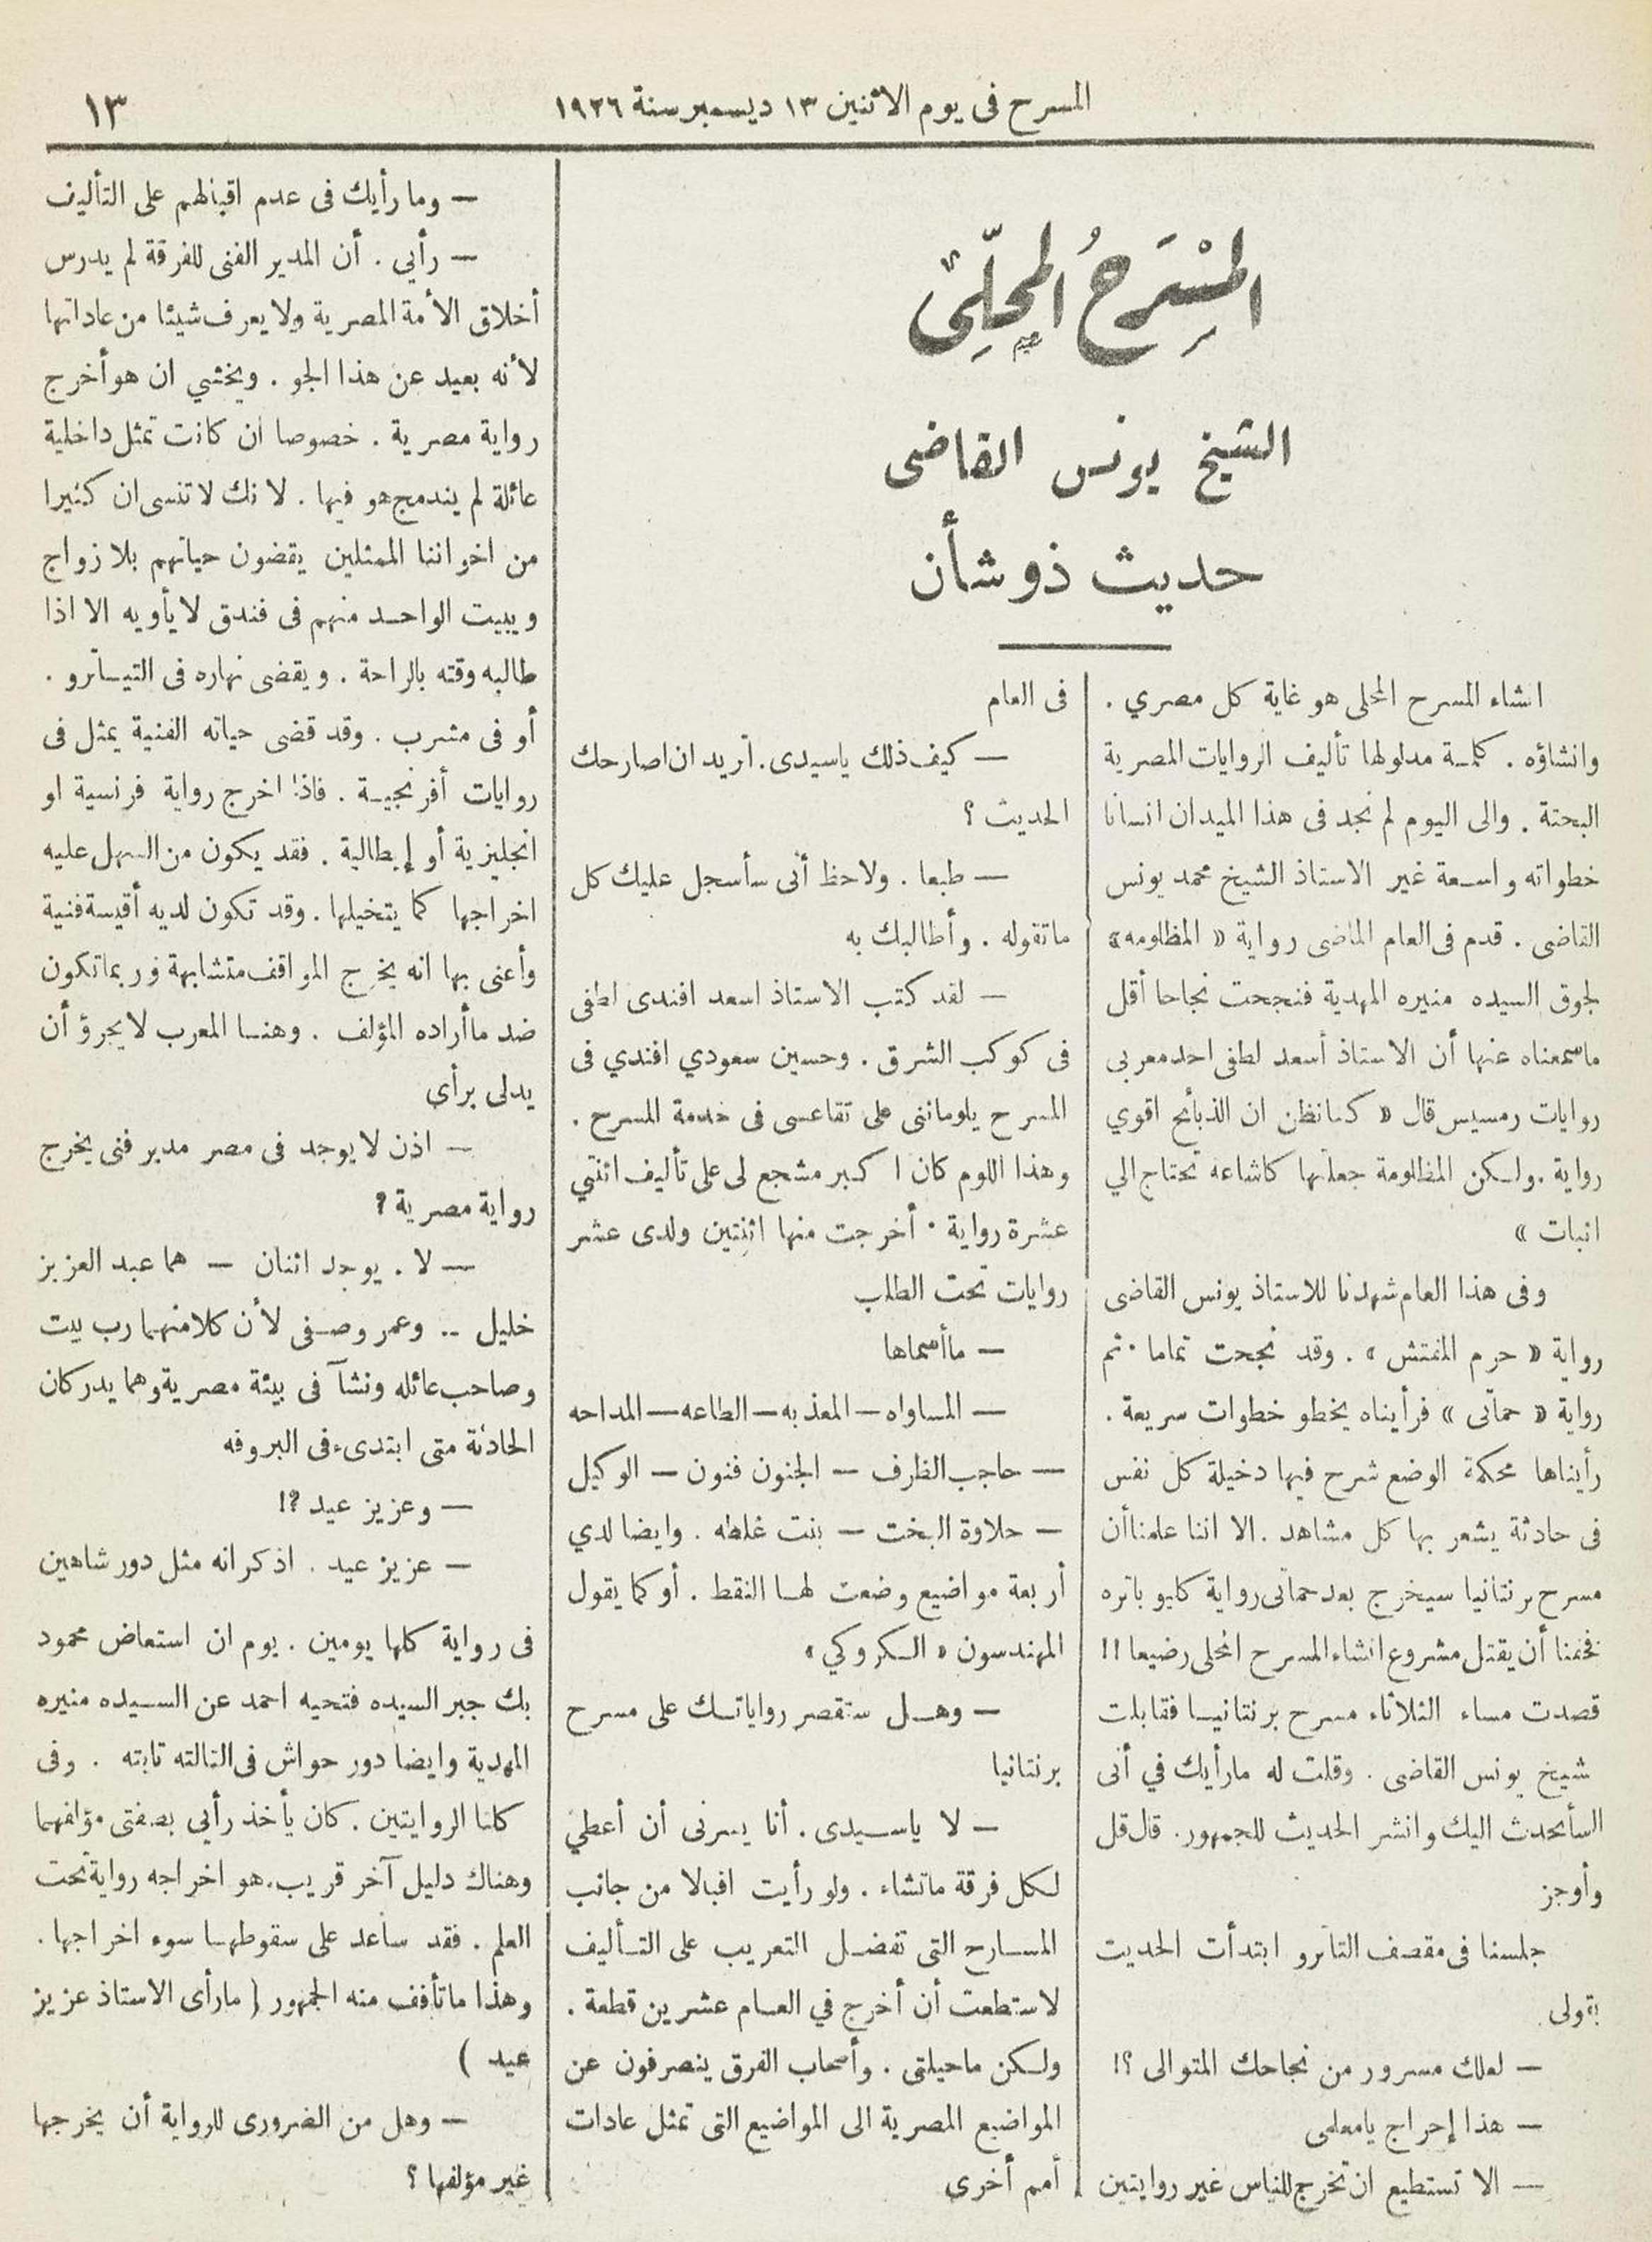 المسرح فى يوم الاثنين ١٣ ديسمبر سنة ١٩٢٦
١٣
المَسْرَحُ المحلِّىّ
الشيخ يونس القاضى
حديث ذو شأن
انشاء المسرح المحلى هو غاية كل مصري .
وانشاؤه . كلمة مدلولها تأليف الروايات المصرية
البحتة . والى اليوم لم نجد فى هذا الميدان انسانا
خطواته واسعة غير الاستاذ الشيخ محمد يونس
القاضى . قدم فى العام الماضى رواية « المظلومه »
لجوق السيده منيره المهدية فنجحت نجاحا أقل
ماسمعناه عنها أن الاستاذ أسعد لطفى احد معربى
روايات رمسيس قال « كنا نظن ان الذبائح اقوي
رواية . ولكن المظلومة جعلتها كاشاعه تحتاج الي
اثبات »
وفى هذا العام شهدنا للاستاذ يونس القاضى
رواية « حرم المفتش » . وقد نجحت تماما . ثم
رواية « حماتى » فرأيناه يخطو خطوات سريعة .
رأيناها محكمة الوضع شرح فيها دخيلة كل نفس
فى حادثة يشعر بها كل مشاهد . الا اننا علمنا أن
مسرح برنتانيا سيخرج بعد حماتى رواية كليو باتره
فخفنا أن يقتل مشروع انشاء المسرح المحلى رضيعا !!
قصدت مساء الثلاثاء مسرح برنتانيا فقابلت
شيخ يونس القاضى . وقلت له مارأيك في أنى
السأتحدث اليك وانشر الحديث للجمهور . قال قل
وأوجز
جلسنا فى مقصف التاترو ابتدأت الحديت
بقولى
— لعلك مسرور من نجاحك المتوالى ؟!
— هذا إحراج يامعلمى
— الا تستطيع ان تخرج للناس غير روايتين
فى العام
— كيف ذلك ياسيدى . أتريد ان اصارحك
الحديث ؟
— طبعا . ولاحظ أنى سأسجل عليك كل
ماتقوله . وأطالبك به
— لقد كتب الاستاذ اسعد افندى لطفى
فى كوكب الشرق . وحسين سعودي افندي فى
المسرح يلوماننى على تقاعسى فى خدمة المسرح .
وهذا اللوم كان اكبر مشجع لى على تأليف اثنتي
عشرة رواية . أخرجت منها اثنتين ولدى عشر
روايات تحت الطلب
— ماأسماها
— المساواه — المعذبه — الطاعه — المداحه
— حاجب الظرف — الجنون فنون — الوكيل
— حلاوة البخت — بنت غلطه . وايضا لدي
أربعة مواضيع وضعت لها النقط . أو كما يقول
المهندسون « الكروكي »
— وهل ستقصر رواياتك على مسرح
برنتانيا
— لا ياسيدى . أنا يسرنى أن أعطي
لكل فرقة ماتشاء . ولو رأيت اقبالا من جانب
المسارح التى تفضل التعريب على التأليف
لاستطعت أن أخرج في العام عشرين قطعة .
ولكن ماحيلتى . وأصحاب الفرق ينصرفون عن
المواضيع المصرية الى المواضيع التى تمثل عادات
أمم أخرى
— وما رأيك فى عدم اقبالهم على التأليف
— رأيي . أن المدير الفنى للفرقة لم يدرس
أخلاق الأمة المصرية ولا يعرف شيئا من عاداتها
لأنه بعيد عن هذا الجو . ويخشي ان هو أخرج
رواية مصرية . خصوصا ان كانت تمثل داخلية
عائلة لم يندمج هو فيها . لانك لا تنسى ان كثيرا
من اخواننا الممثلين يقضون حياتهم بلا زواج
ويبيت الواحد منهم فى فندق لا يأويه الا اذا
طالبه وقته بالراحة . ويقضى نهاره فى التياترو .
أو فى مشرب . وقد قضى حياته الفنية يمثل فى
روايات أفرنجية . فاذا اخرج رواية فرنسية او
انجليزية أو إيطالية . فقد يكون من السهل عليه
اخراجها كما يتخيلها . وقد تكون لديه أقيسة فنية
وأعنى بها انه يخرج المواقف متشابهة وربما تكون
ضد ماأراده المؤلف . وهنا المعرب لا يجرؤ أن
يدلى برأى
— اذن لا يوجد فى مصر مدير فنى يخرج
رواية مصرية ؟
— لا . يوجد اثنان — هما عبد العزيز
خليل .. وعمر وصفى لأن كلا منهما رب بيت
وصاحب عائله ونشآ فى بيئة مصرية وهما يدركان
الحادثة متى ابتدىء فى البروفه
— وعزيز عيد ؟!
— عزيز عيد . اذكر انه مثل دور شاهين
فى رواية كلها يومين . يوم ان استعاض محمود
بك جبر السيده فتحيه احمد عن السيده منيره
المهدية وايضا دور حواش فى التالته تابته . وفى
كلتا الروايتين . كان يأخذ رأيي بصفتى مؤلفهما
وهناك دليل آخر قريب . هو اخراجه رواية تحت
العلم . فقد ساعد على سقوطها سوء اخراجها .
وهذا ماتأفف منه الجمهور ( مارأى الاستاذ عزيز
عيد )
— وهل من الضرورى للرواية أن يخرجها
غير مؤلفها ؟